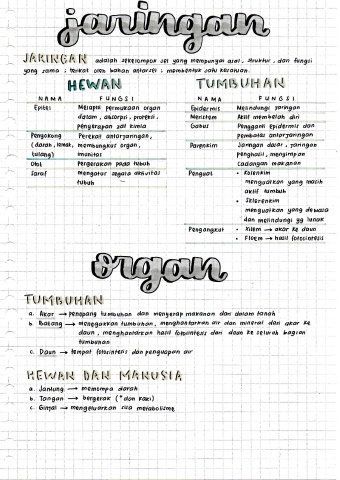 jaringan
JARINGAN adalah sekelompok sel yang mempunyai asal, struktur, dan fungsi
yang sama ; terikat oleh bahan antarsel ; membentuk satu kesatuan.
HEWAN
NAMA FUNGSI
Epitel Melapisi permukaan organ
dalam, absorpsi, proteksi,
penyerapan zat kimia
Penyokong Perekat antarjaringan,
(darah, lemak, membungkus organ,
tulang) imunitas
Otot Pergerakan pada tubuh
Saraf Mengatur segala aktivitas
tubuh
TUMBUHAN
NAMA FUNGSI
Epidermis Melindungi jaringan
Meristem Aktif membelah diri
Gabus Pengganti epidermis dan
pembatas antarjaringan
Parenkim Jaringan dasar, jaringan
penghasil, menyimpan
cadangan makanan
Penguat • Kolenkim
menguatkan yang masih
aktif tumbuh
• Sklerenkim
menguatkan yang dewasa
dan melindungi yg lunak
Pengangkut • Xilem → akar ke daun
• Floem → hasil fotosintesis
organ
TUMBUHAN
a. Akar → penopang tumbuhan dan menyerap makanan dari dalam tanah
b. Batang → menegakkan tumbuhan, menghantarkan air dan mineral dari akar ke
daun, menghantarkan hasil fotosintesis dari daun ke seluruh bagian
tumbuhan
c. Daun → tempat fotosintesis dan penguapan air
HEWAN DAN MANUSIA
a. Jantung → memompa darah
b. Tangan → bergerak (+ dan kaki)
c. Ginjal → mengeluarkan sisa metabolisme